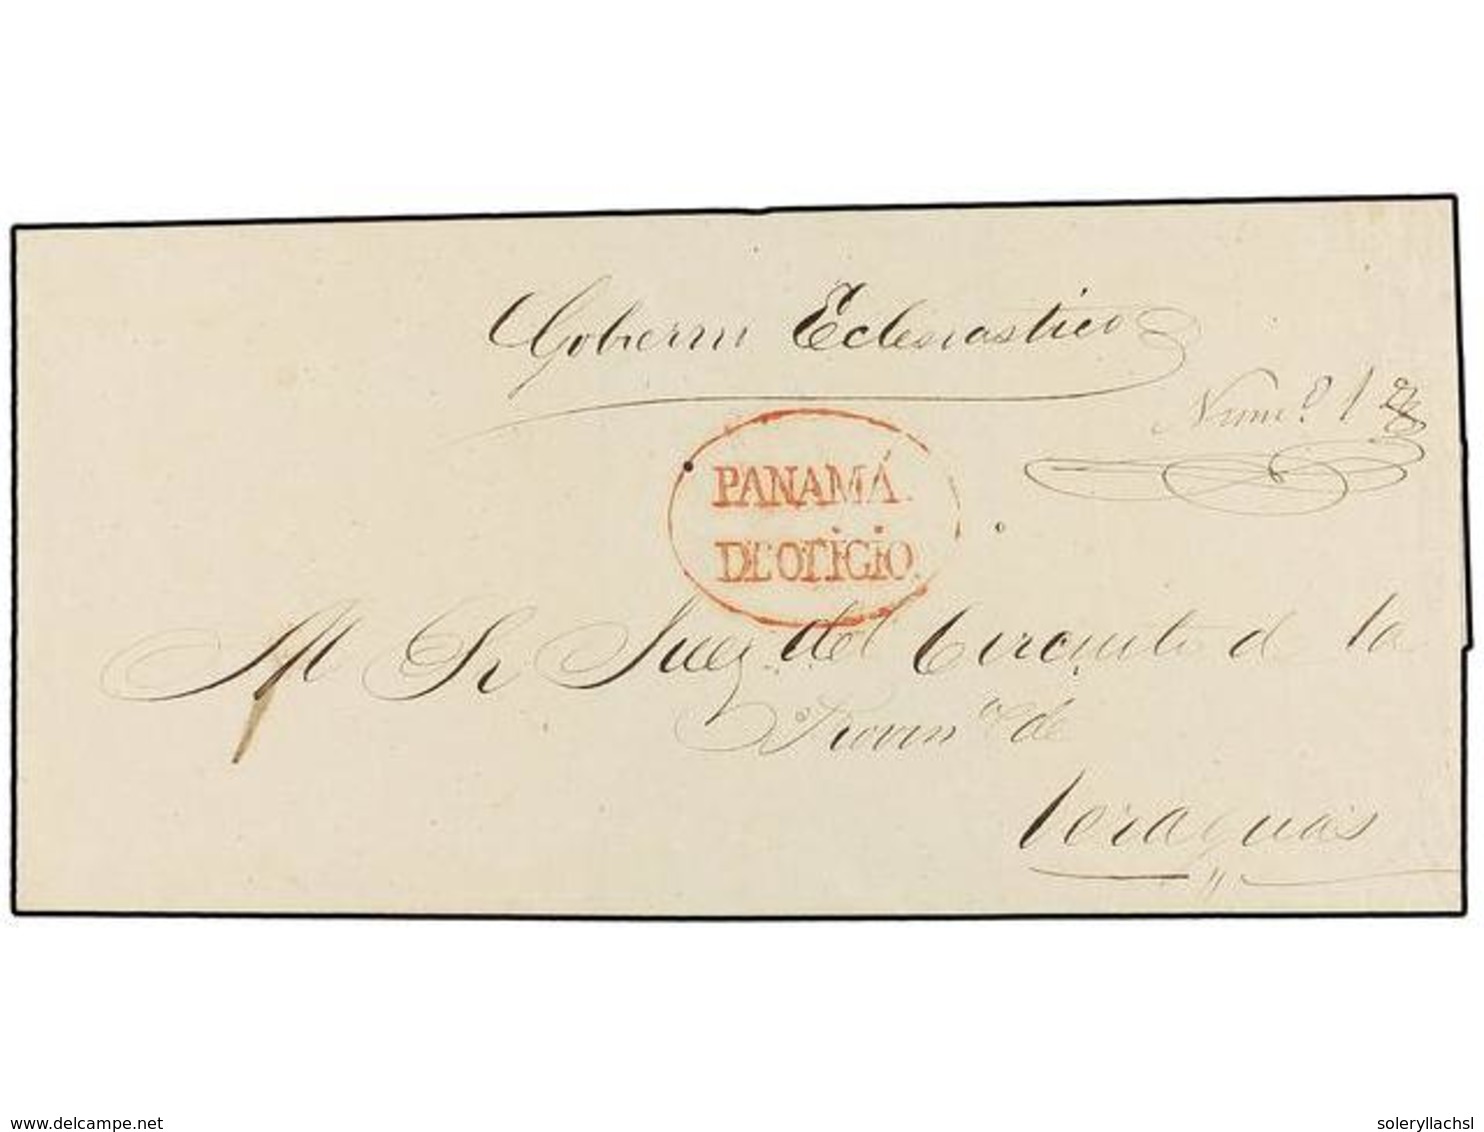 Gobierno Eclesiastico
Num.º 1
PANAMÁ.
DE OFICIO.
Al Sr Juez del Circuito de la
Provin.ª de
Veraguas
delcampe.net
soleryllachsl